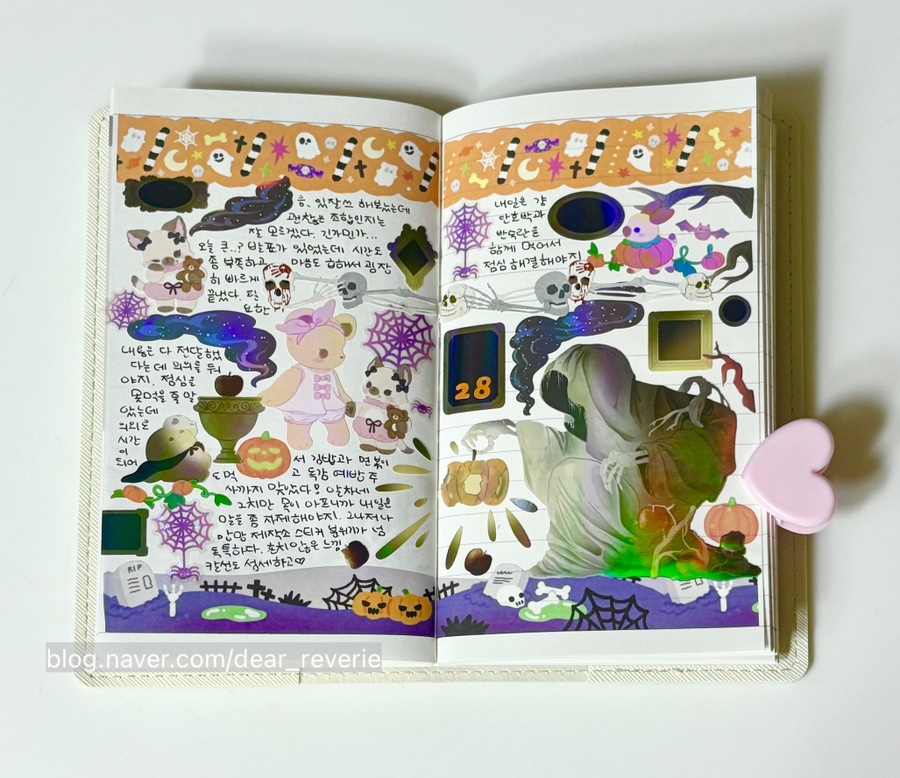 음, 있잖쓰 해보았는데
괜찮은 조합인지는
잘 모르겠다. 긴가민가...
오늘 큰..? 발표가 있었는데 시간도
좀 부족하고 마음도 급해서 굉장
히 빠르게
끝냈다. 필
요한
내용은 다 전달했
다는데 의의를 둬
야지. 점심을
못먹을 줄 알
았는데
의외로
시간
이
되어
서 김밥과 면
도 먹 고 독감 예방 주
사까지 맞았다! 알차네
그치만 몸이 아프니까 내일은
오늘 좀 자제해야지. 그나저나
만양 제작소 스티커 분위기가 넘
독특하다. 흔치 않은 느낌
칼선도 섬세하고♡
내일은 걍
단호박과
반숙란을
함께 먹어서
점심 해결해야지
28
RIP
blog.naver.com/dear_reverie